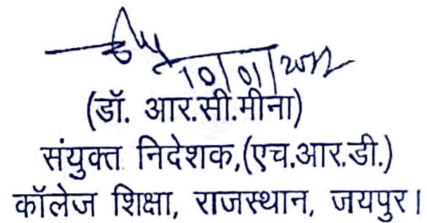 10/01/2022
(डॉ. आर.सी.मीना)
संयुक्त निदेशक,(एच.आर.डी.)
कॉलेज शिक्षा, राजस्थान, जयपुर।